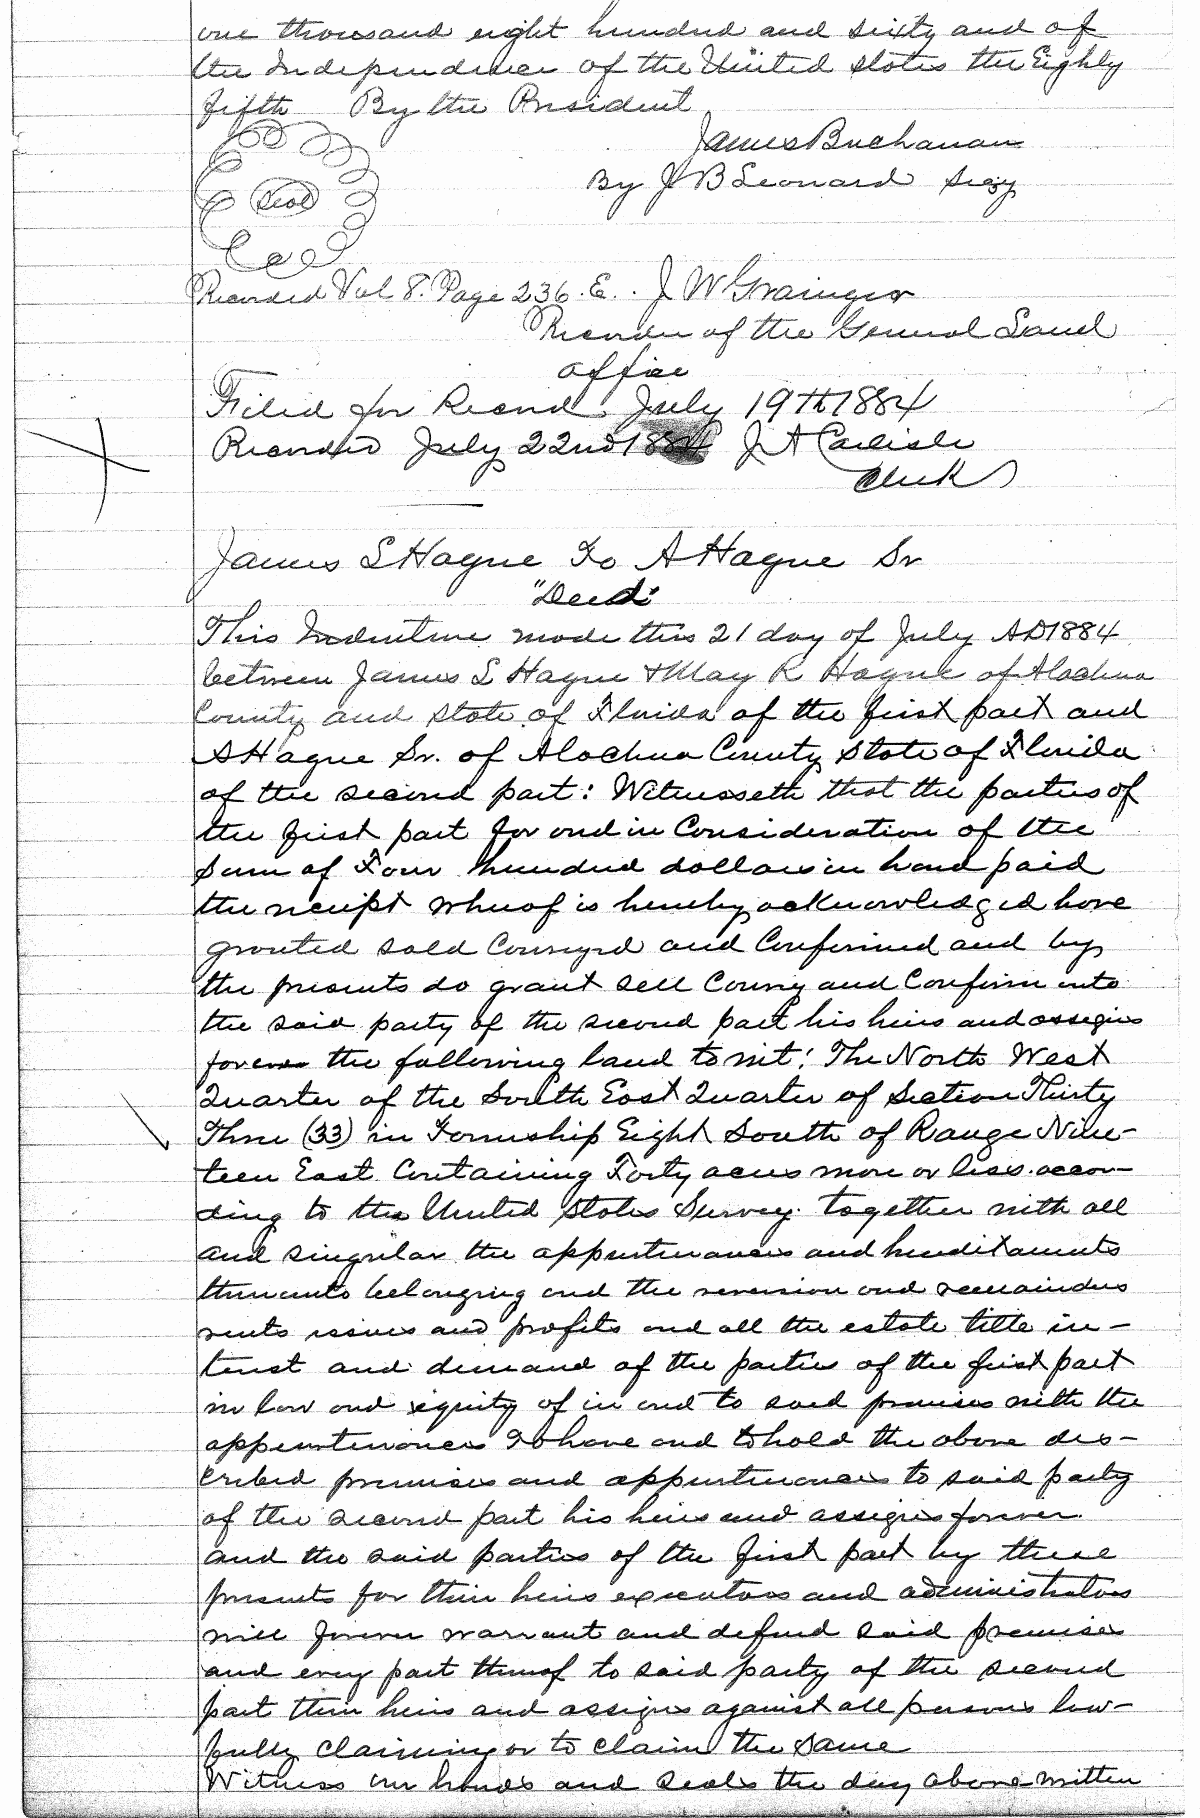 one thousand eight hundred and sixty and of
the Independence of the United States the Eighty
fifth By the President
James Buchanan
By J B Leonard Secy
Seal
Recorded Vol 8. Page 236. E. . J W Grainger
Recorder of the General Land
office
Filed for Record July 19th 1884
Recorded July 22nd 1884 J A Carlisle
Clerk
James S Hague To A Hague Sr
"Deed"
This Indenture made this 21 day of July AD1884
between James S Hague & May R Hague of Alachua
County and State of Florida of the first part and
A Hague Sr. of Alachua County State of Florida
of the second part: Witnesseth that the parties of
the first part for and in Consideration of the
Sum of Four hundred dollars in hand paid
the receipt whereof is hereby acknowledged have
granted sold Conveyed and Confirmed and by
the presents do grant sell Convey and Confirm unto
the said party of the second part his heirs and assigns
forever the following land to wit: The North West
Quarter of the South East Quarter of Section Thirty
Three (33) in Township Eight South of Range Nine-
teen East Containing Forty acres more or less accor-
ding to the United States Survey. together with all
and singular the appurtenances and hereditaments
thereunto belonging and the reversion and remainders
rents issues and profits and all the estate title in-
terest and demand of the parties of the first part
in law and equity of in and to said premises with the
appurtenances To have and to hold the above des-
cribed premises and appurtenances to said party
of the second part his heirs and assigns forever.
and the said parties of the first part by these
presents for their heirs executors and administrators
will forever warrant and defend said premises
and every part thereof to said party of the second
part their heirs and assigns against all persons law-
fully claiming or to claim the same
Witness our hands and seals the day above written